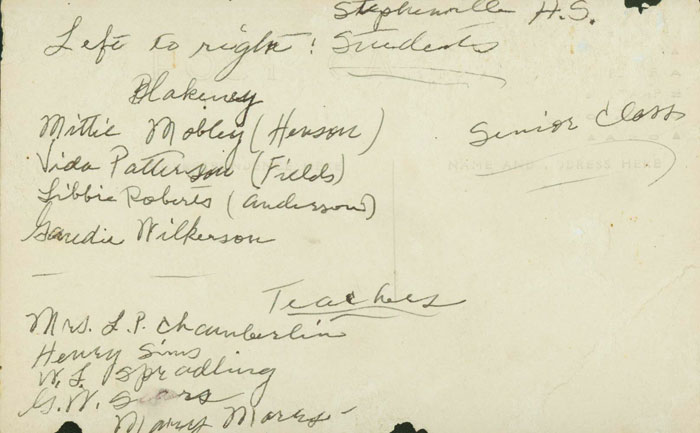 Stephenville H.S.
Left to right: Students
Blakeney
Mittie Mobley (Henson)
Senior Class
Vida Patterson (Fields)
NAME AND ADDRESS HERE
Libbie Roberts (Anderson)
Wilkerson
Teachers
Mrs. L. P. Chamberlin
Henry Sims
W. L. Spradling
G. W.
Mary